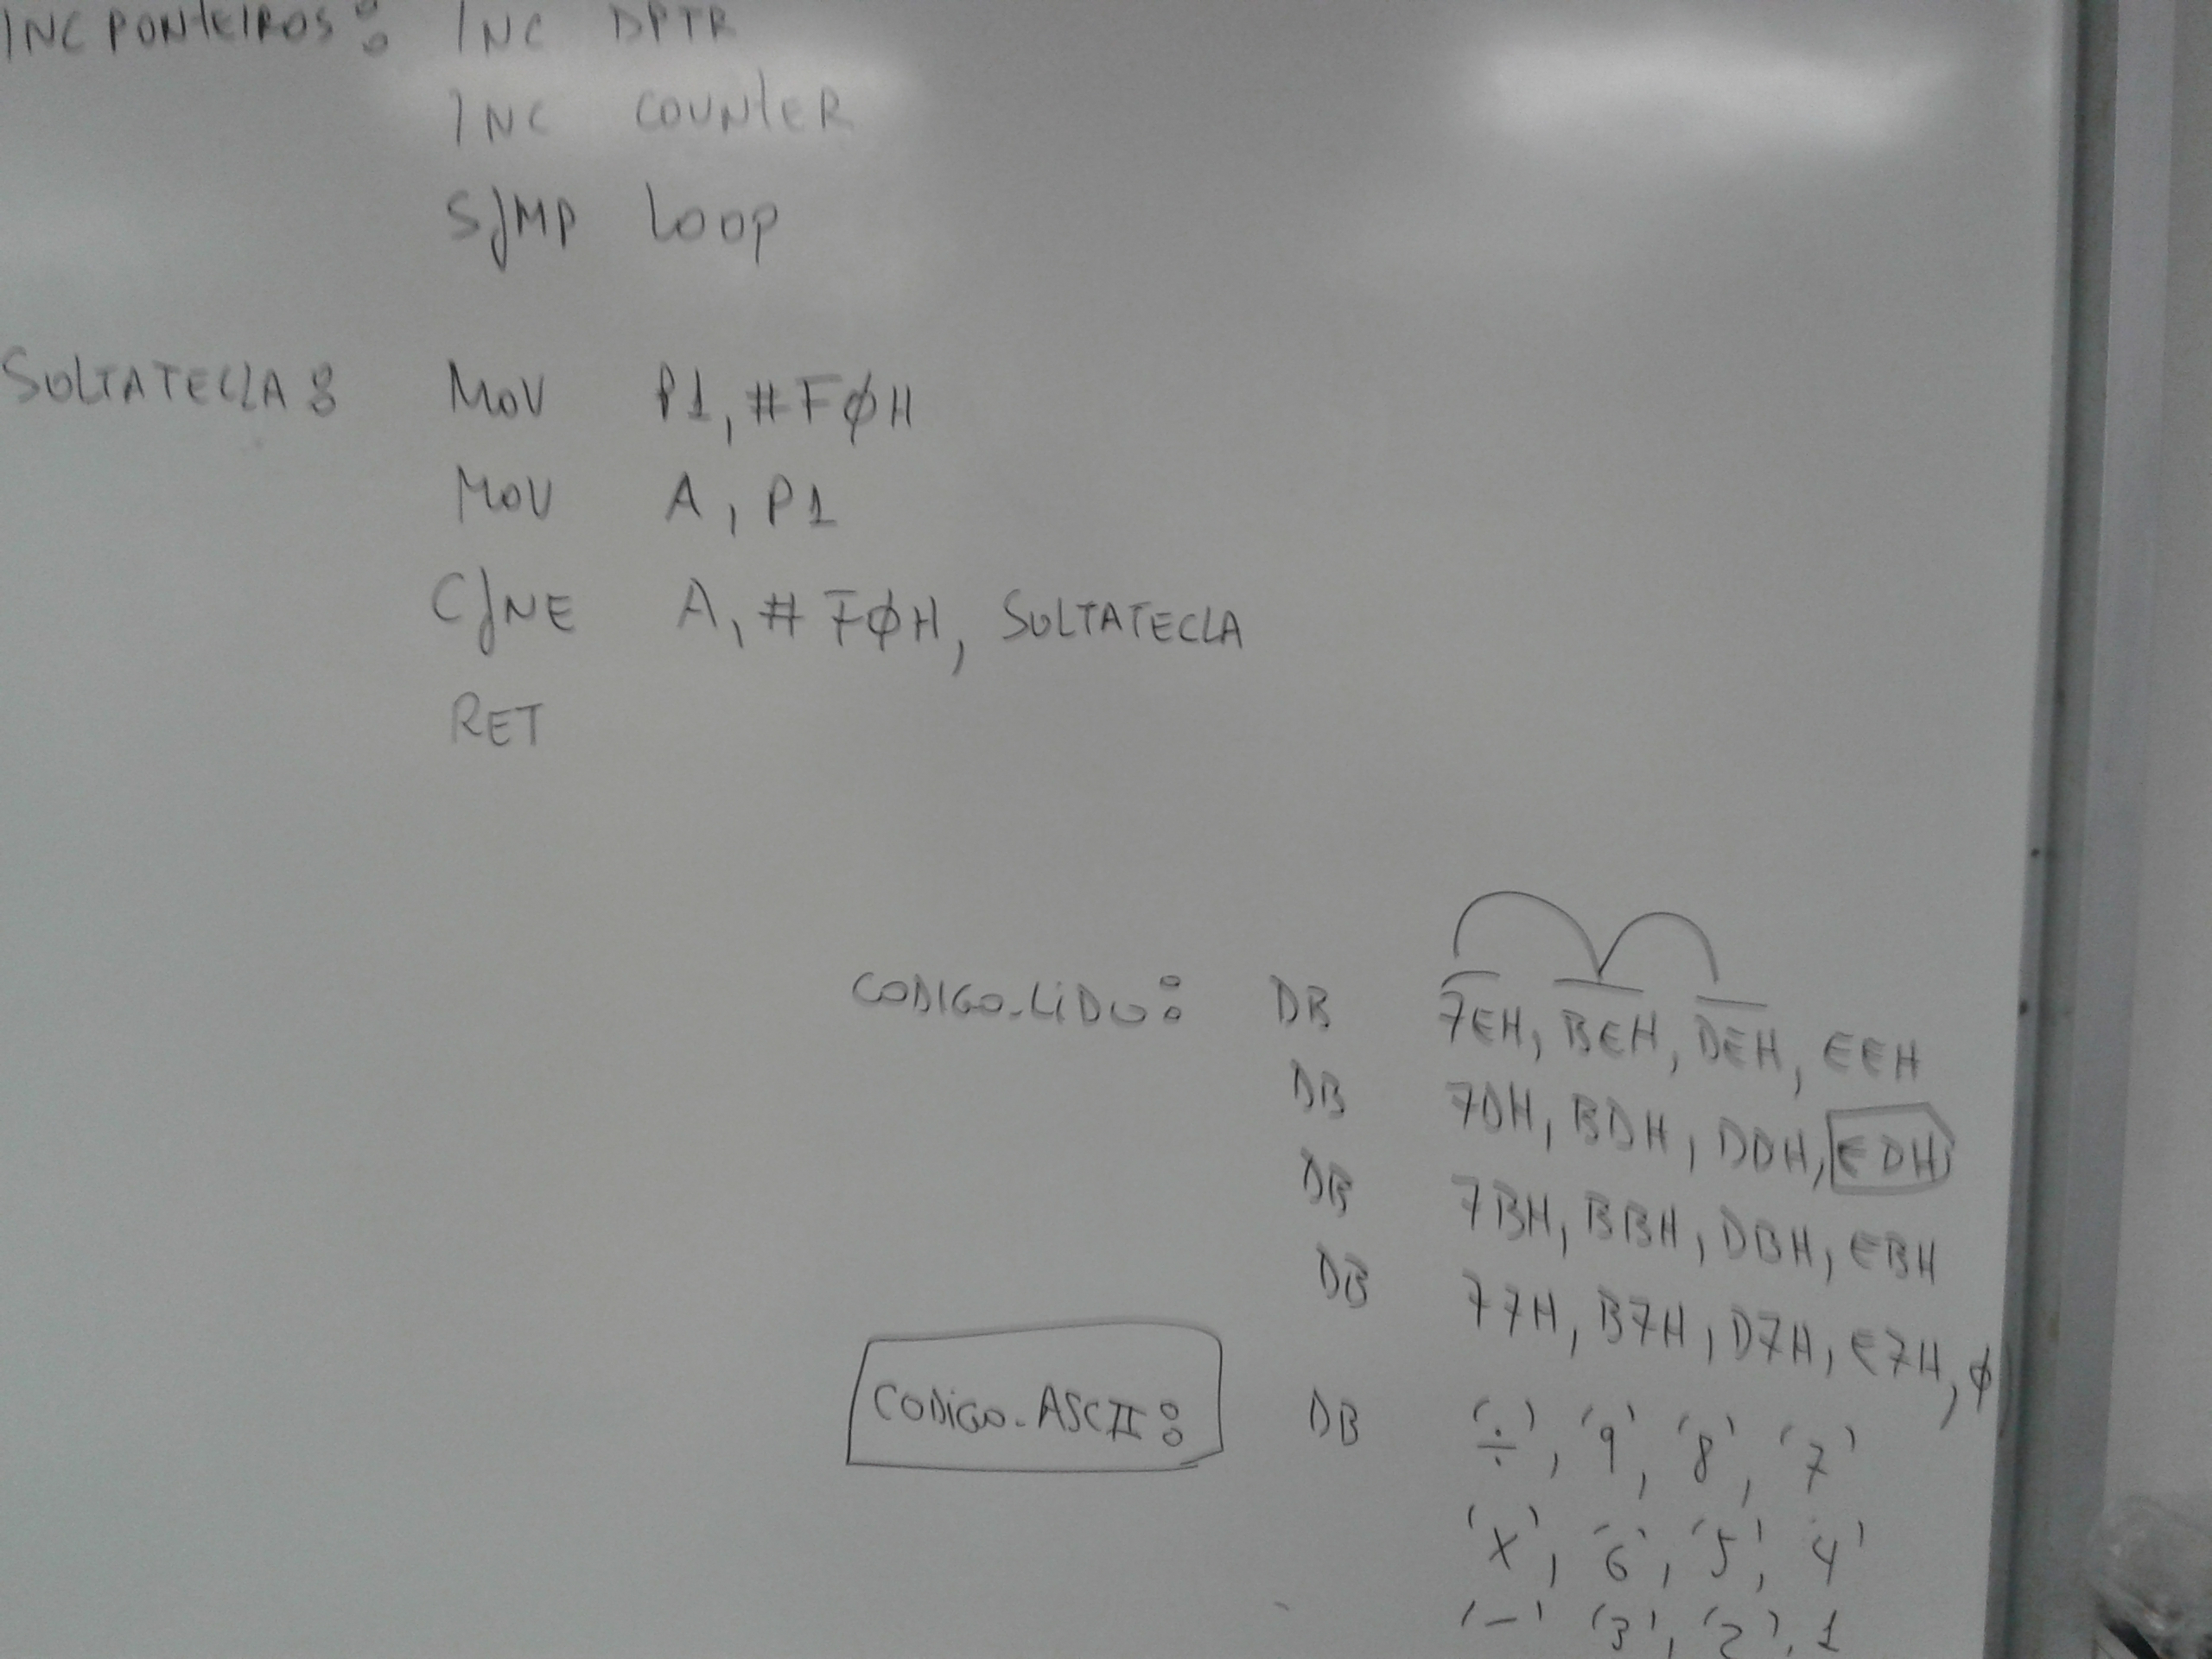 INCPONTEIROS: INC DPTR
INC COUNTER
SJMP LOOP
SOLTATECLA: MOV P1, #FØH
MOV A, P1
CJNE A, #FØH, SOLTATECLA
RET
CODIGO_LIDO: DB 7EH, BEH, DEH, EEH
DB 7DH, BDH, DDH, EDH
DB 7BH, BBH, DBH, EBH
DB 77H, B7H, D7H, E7H, Ø
CODIGO_ASCII: DB '÷', '9', '8', '7'
'X', '6', '5', '4'
'-' '3', '2', 1